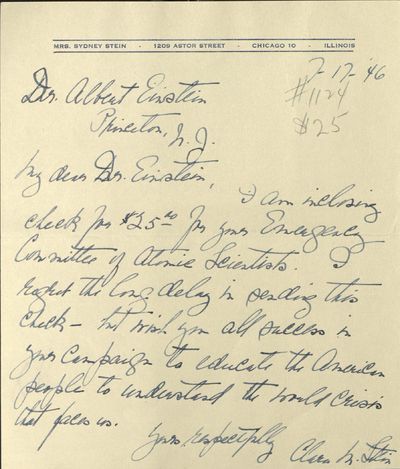 MRS. SYDNEY STEIN - 1209 ASTOR STREET - CHICAGO 10 - ILLINOIS
7-17-'46
#1124
$25
Dr. Albert Einstein
Princeton, N.J.
My dear Dr. Einstein,
I am inclosing
check for $25.00 for your Emergency
Committee of Atomic Scientists. I
regret the long delay in sending this
check - but wish you all success in
your campaign to educate the American
people to understand the world crisis
that faces us.
Yours respectfully
Clara M. Stein